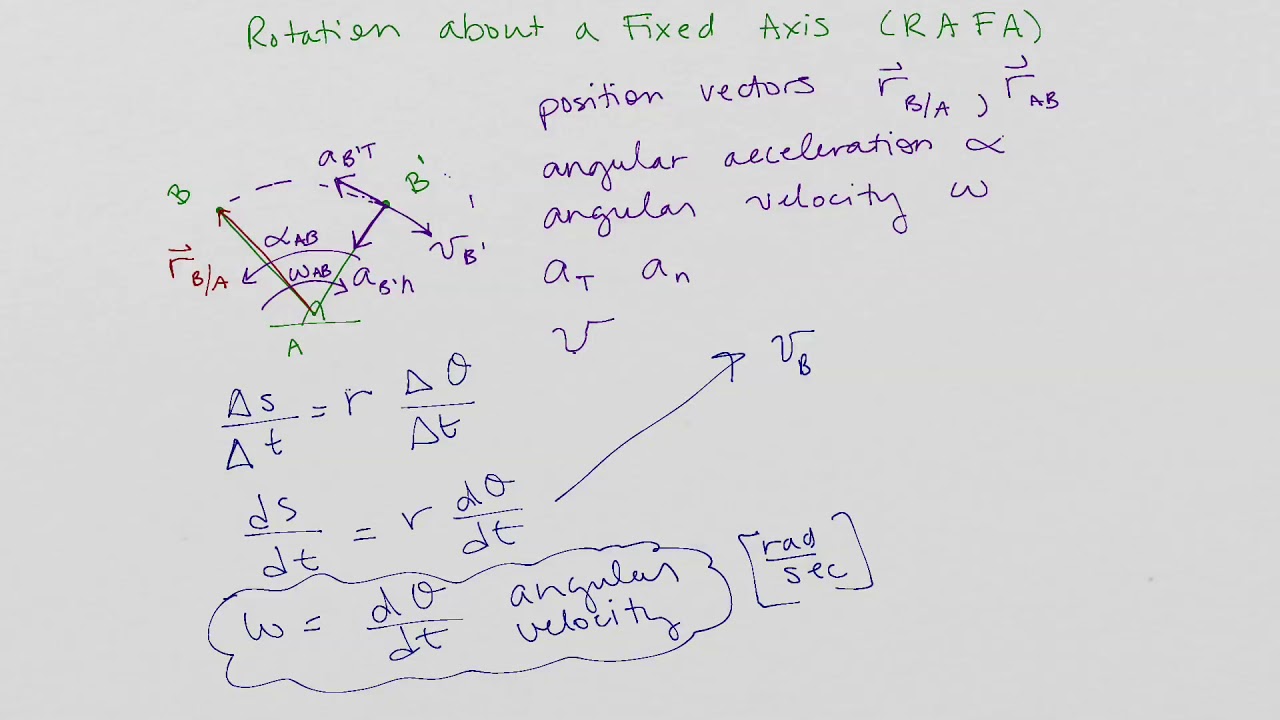 Rotation about a Fixed Axis (RAFA)
position vectors r⃗_B/A, r⃗_AB
angular acceleration α
angular velocity ω
a_T a_n
v
B
B'
a_B'T
v_B'
α_AB
ω_AB
a_B'n
r⃗_B/A
A
Δs/Δt = r Δθ/Δt
v_B
ds/dt = r dθ/dt
ω = dθ/dt angular velocity [rad/sec]